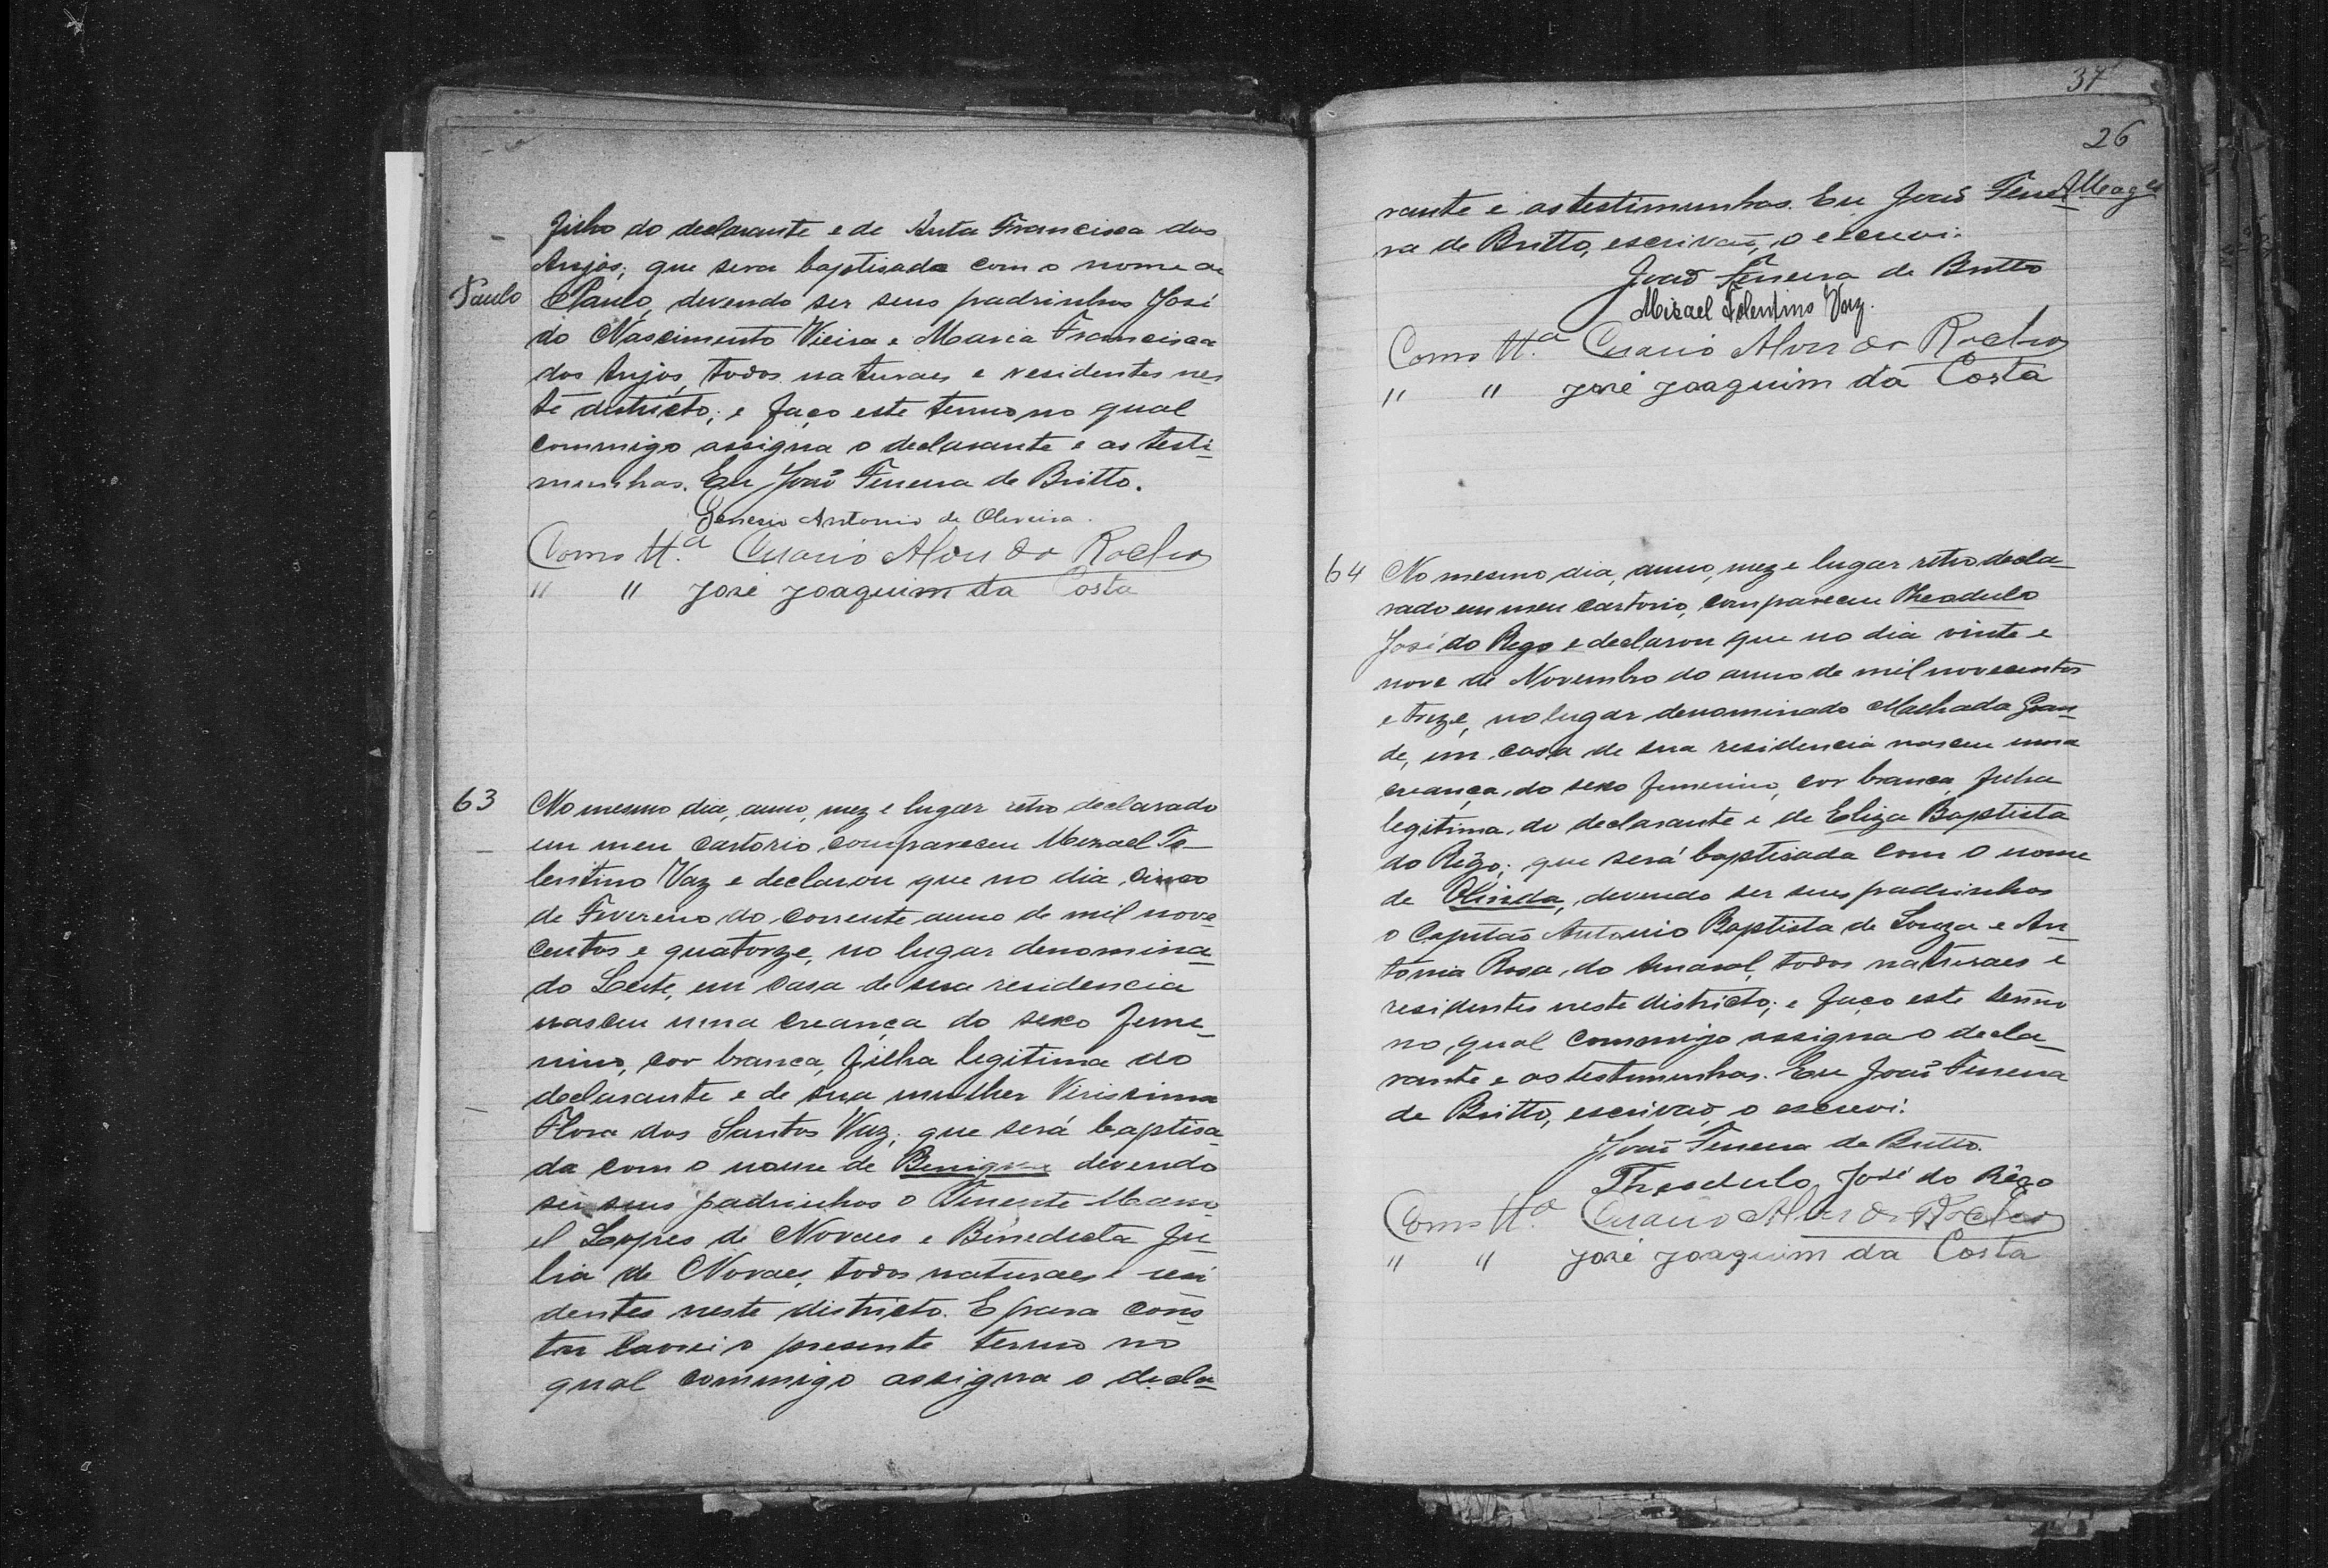 filho do declarante e de Anta Francisca dos
Anjos; que sera baptisada com o nome de
Paulo
Paulo, devendo ser seus padrinhos José
do Nascimento Vieira e Maria Francisca
dos Anjos, todos naturaes e residentes nes
te districto; e faço este termo no qual
commigo assigna o declarante e as teste-
munhas. Eu João Ferreira de Britto.
Generio Antonio de Oliveira.
Como tt.a Alves da Rocha
" " José Joaquim da Costa
63
No mesmo dia, anno, mez e lugar retro declarado
em meu cartorio, compareceu Mizael To-
lentino Vaz e declarou que no dia cinco
de Fevereiro do corrente anno de mil nove-
centos e quatorze, no lugar denomina-
do Leite, em casa de sua residencia
nasceu uma creança do sexo femi-
nino, cor branca, filha legitima do
declarante e de sua mulher Virissima
Flora dos Santos Vaz; que será baptisa-
da com o nome de Benigna devendo
ser seus padrinhos o Tenente Mano-
el Lopes de Novaes e Benedicta Ju-
lia de Novaes, todos naturaes e resi
dentes neste districto. E para cons
tar lavrei o presente termo no
qual commigo assigna o decla-
37
26
rante e as testimunhas. Eu João Ferrei-
ra de Britto, escrivão, o escrevi.
João Ferreira de Britto
Mizael Tolentino Vaz.
Como tt.a Alves da Rocha
" " José Joaquim da Costa
64
No mesmo dia, anno, mez e lugar retro decla-
rado em meu cartorio, compareceu Theodulo
José do Rego e declarou que no dia vinte e
nove de Novembro do anno de mil novecentos
e treze, no lugar denominado Machada Gran-
de, em casa de sua residencia nasceu uma
creança do sexo femenino, cor branca, filha
legitima, do declarante e de Eliza Baptista
do Rêgo; que será baptisada com o nome
de Olinda, devendo ser seus padrinhos
o Capitão Antonio Baptista de Souza e An-
tonia Rosa do Amaral, todos naturaes e
residentes neste districto; e faço este termo
no qual commigo assigna o decla-
rante e as testemunhas. Eu João Ferreira
de Britto, escrivão, o escrevi.
João Ferreira de Britto.
Theodulo José do Rêgo
Como tt.a Alves da Rocha
" " José Joaquim da Costa